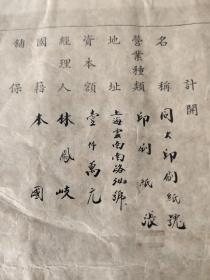 計開
名稱 同大印刷紙號
營業種類 印刷紙張
地址 上海雲南南路 號
資本額 壹仟萬元
經理人 林鳳岐
國籍 本國
舖保